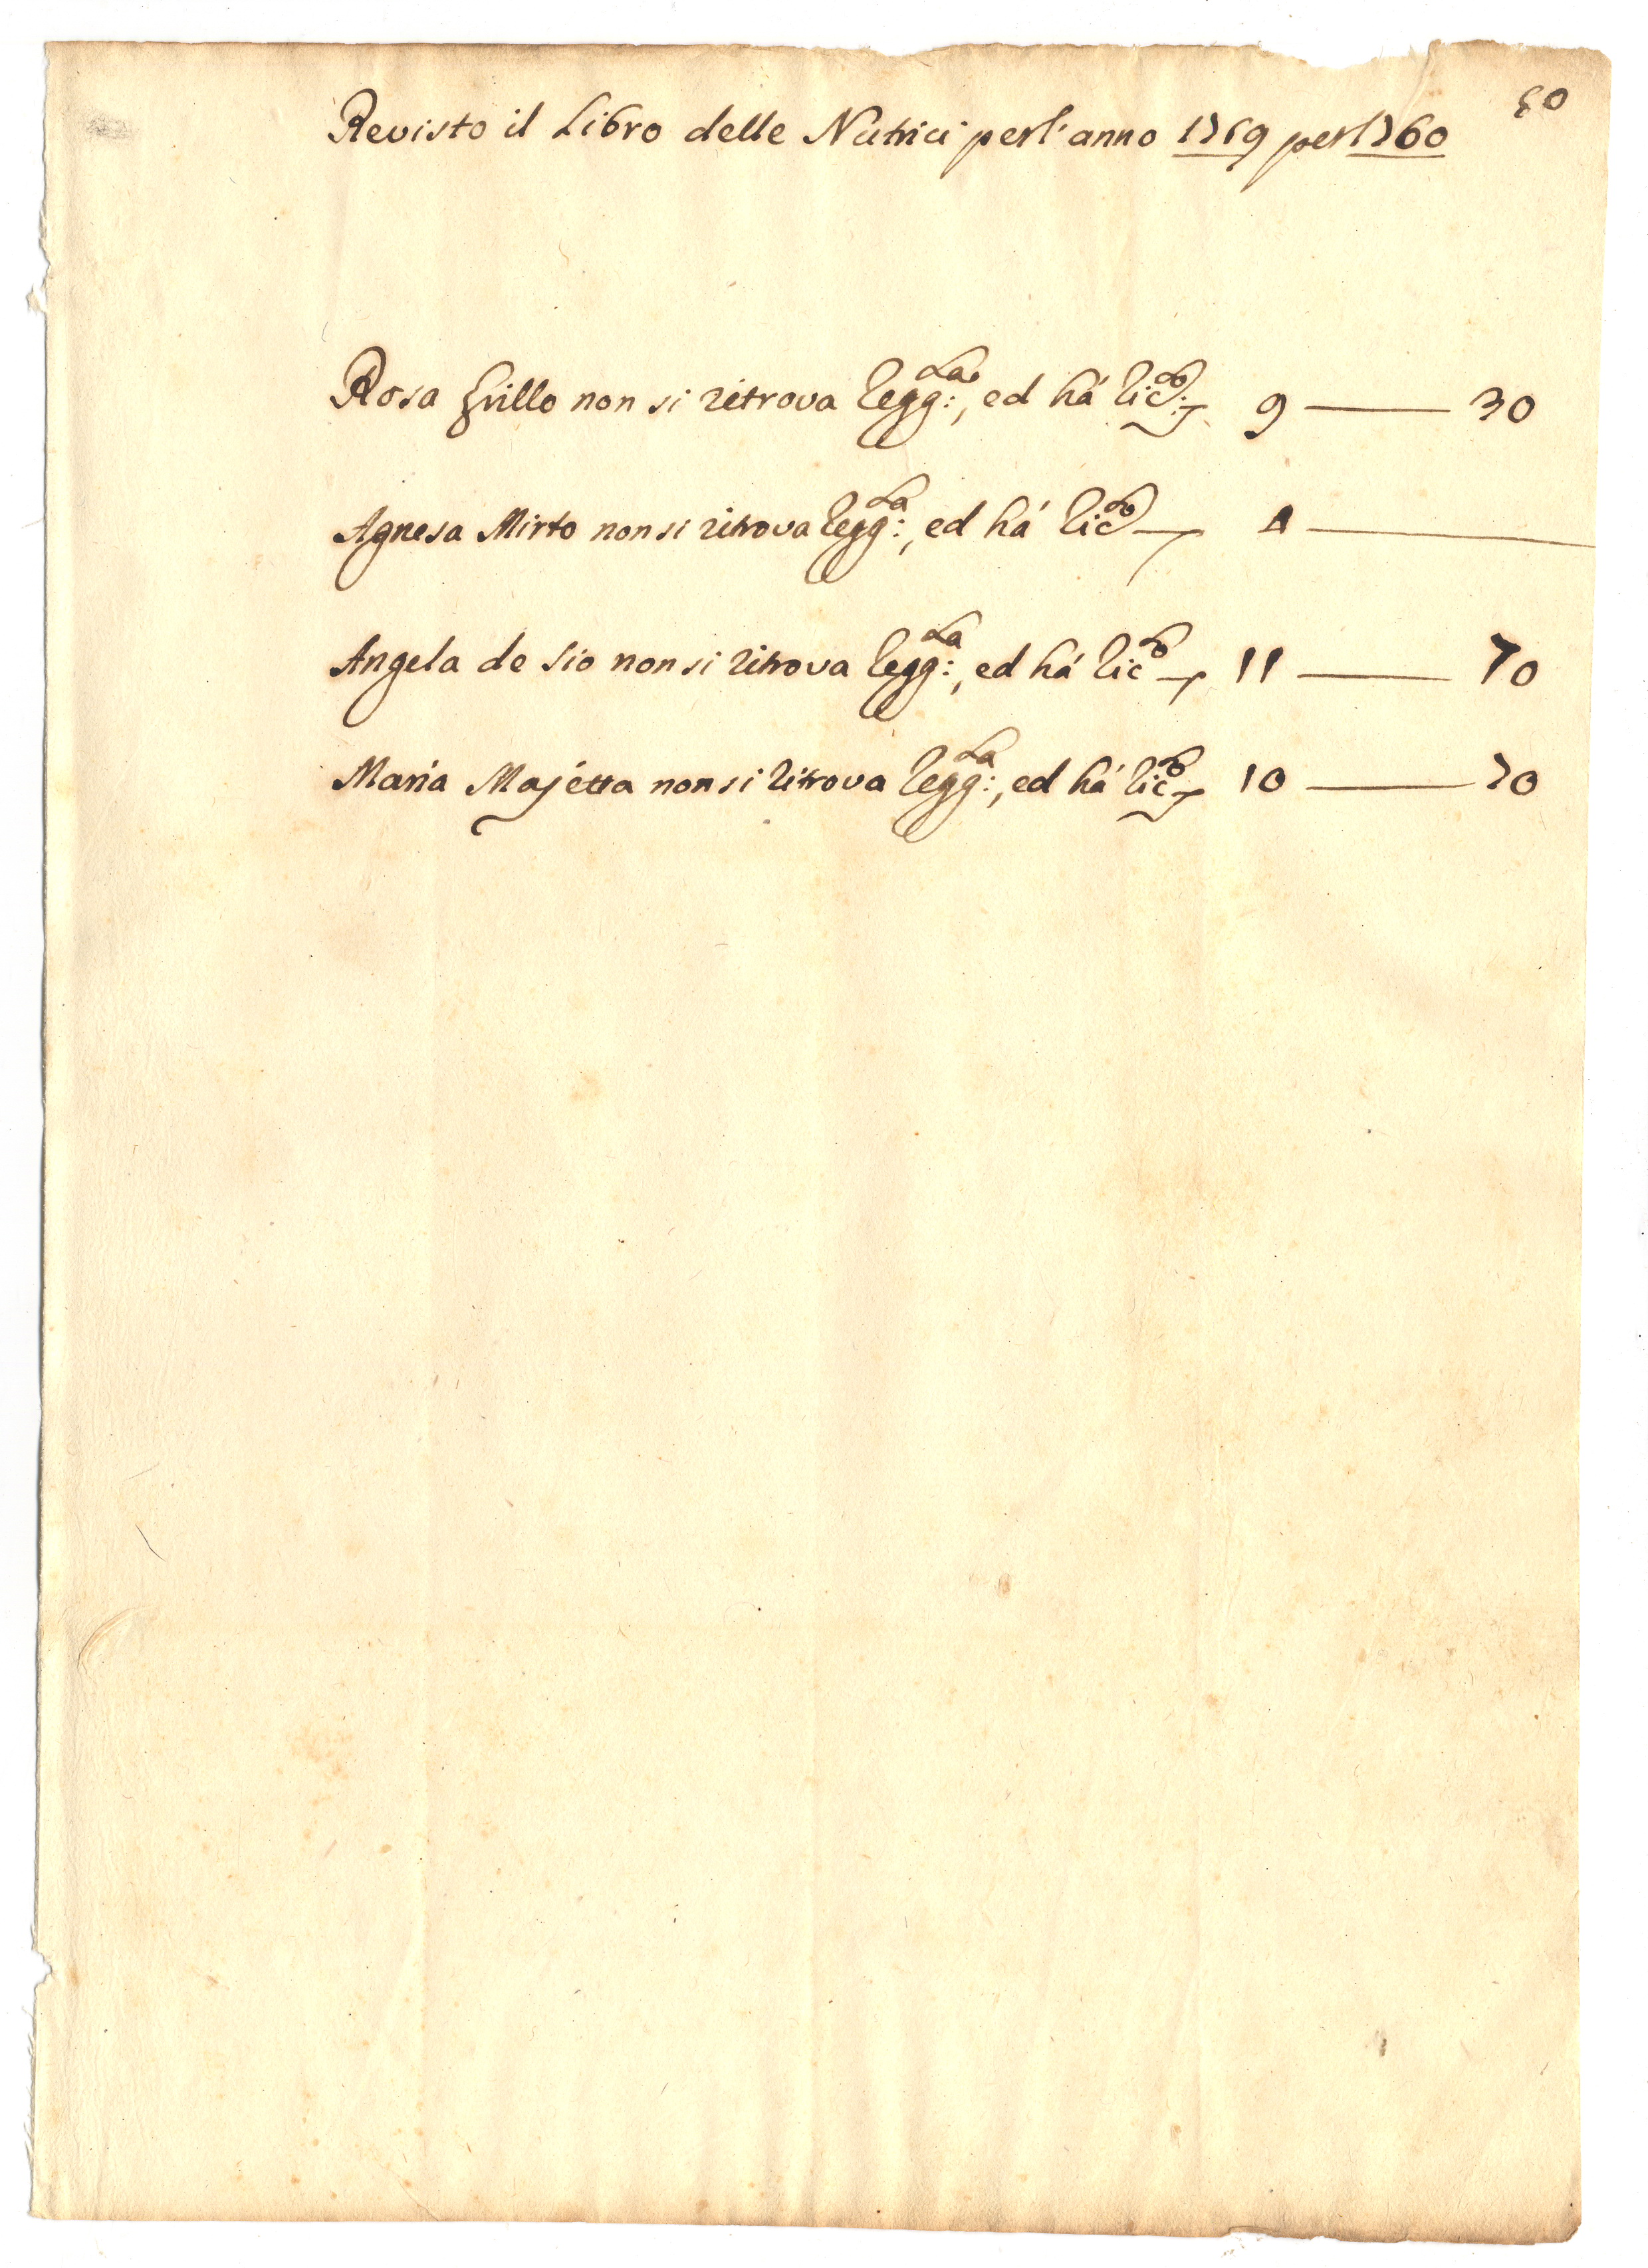 60
Revisto il Libro delle Nutrici per l'anno 1759 per 1760
Rosa Grillo non si ritrova legg:ta, ed há lic:to 9 — 30
Agnesa Mirto non si ritrova legg:ta, ed há licto 4 —
Angela de Sio non si ritrova legg:ta, ed há licto 11 — 70
Maria Majetta non si ritrova legg:ta, ed há licto 10 — 70